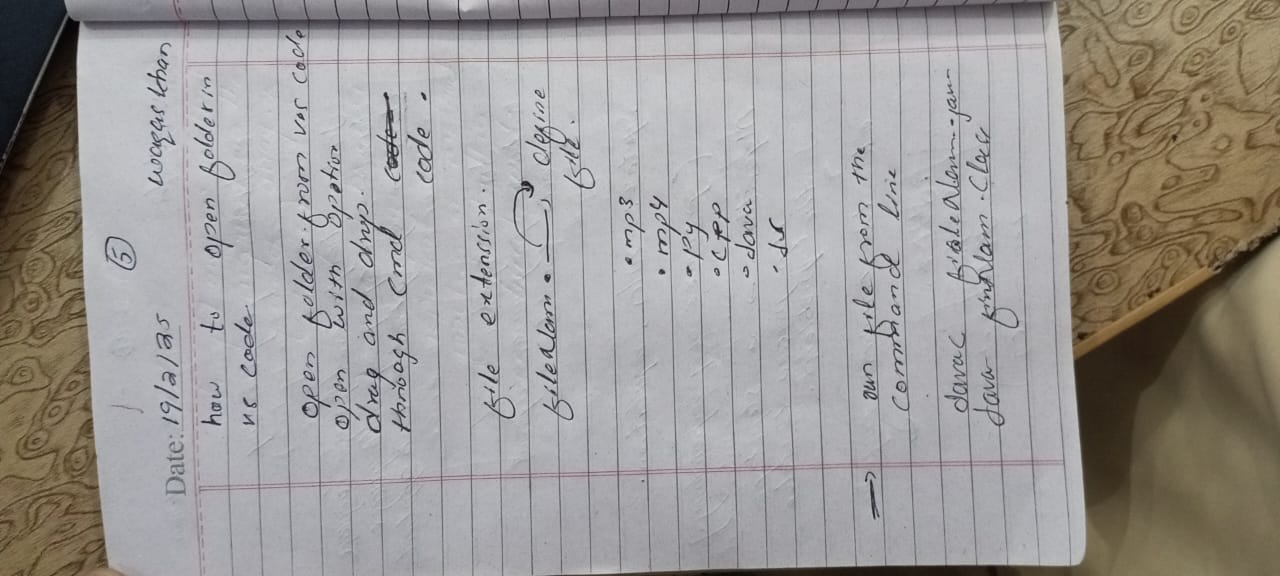 5
Date: 19/2/25 waqas khan
how to open folder in
vs code
open folder from vs code
open with option
drag and drop.
through cmd code
code .
file extension.
fileNam. define
file.
.mp3
.mp4
.py
.cpp
.Java
.Js
→ run file from the
command line
Javac fileNam.java
Java Nam.Class